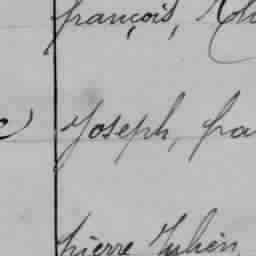 françois,
Joseph,
pierre Julien